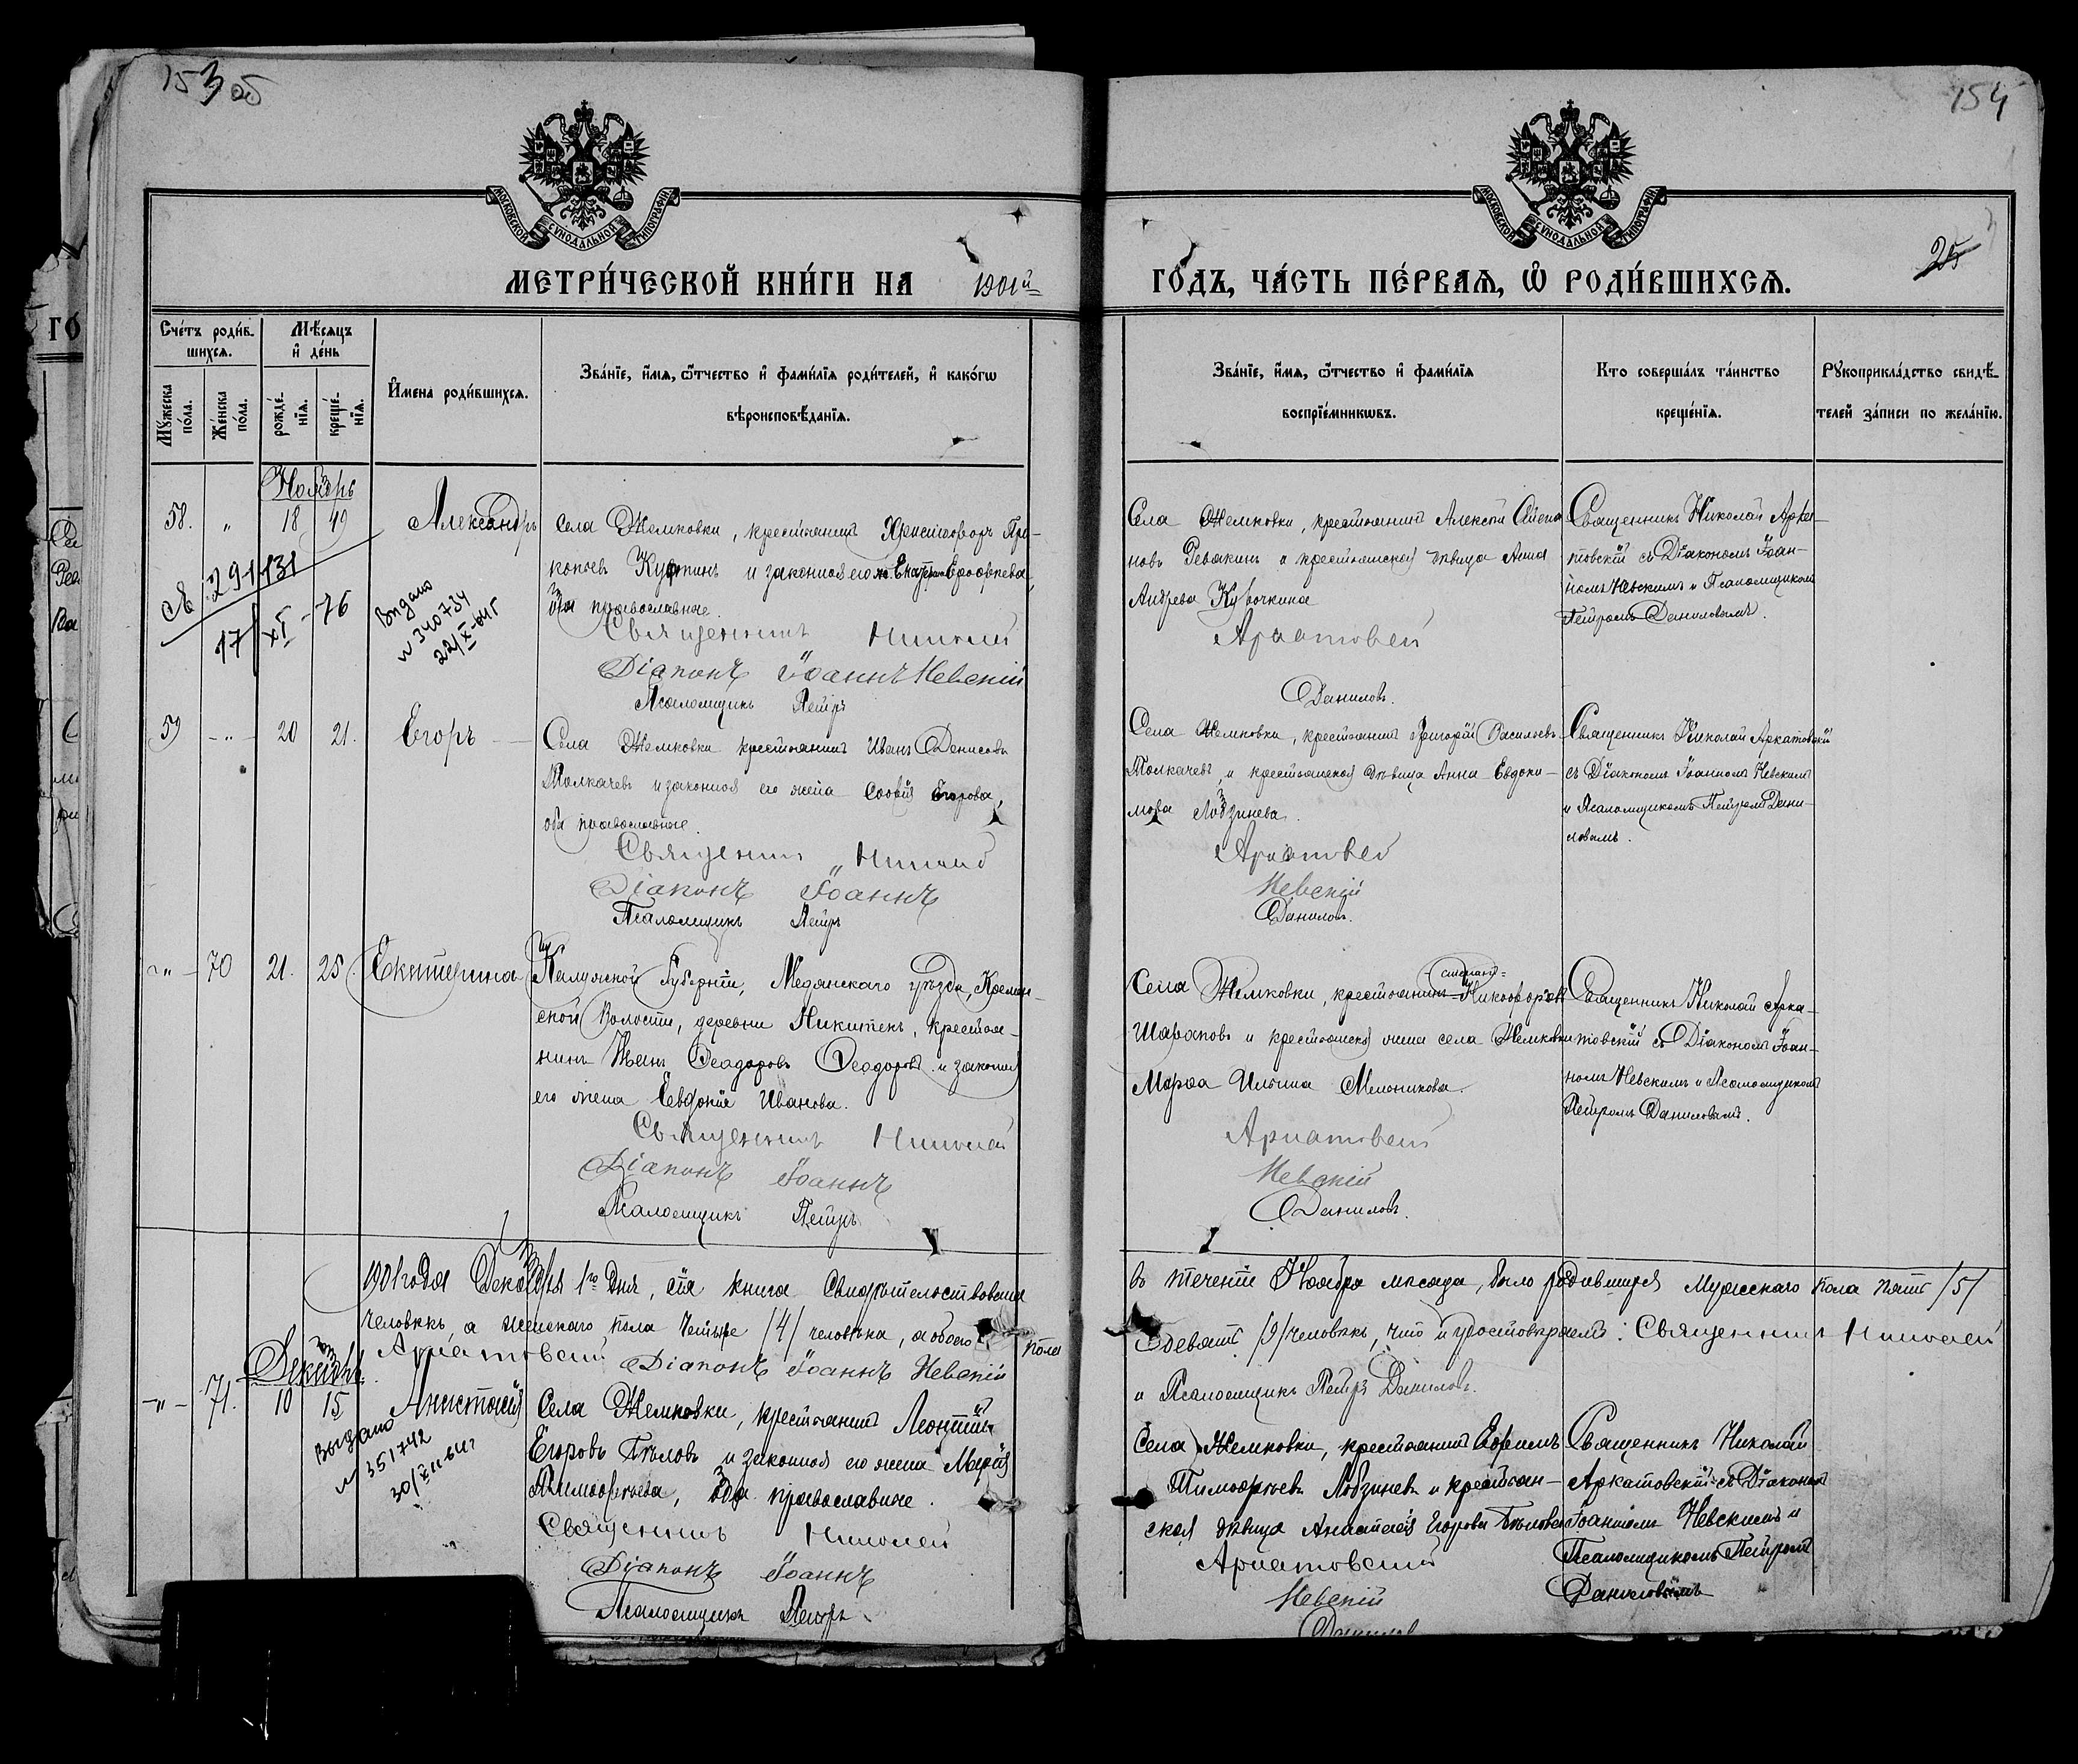 153 25
154
25
МОСКОВСКОЙ СѴНОДАЛЬНОЙ ТИПОГРАФІИ
МОСКОВСКОЙ СѴНОДАЛЬНОЙ ТИПОГРАФІИ
МЕТРИ́ЧЕСКОЙ КНИ́ГИ НА 1901й ГО́ДЪ, ЧА́СТЬ ПЕ́РВАЯ, Ѡ РОДИ́ВШИХСЯ.
Сче́тъ роди́в-
шихся.
Мꙋжеска по́ла.
Же́нска по́ла.
Мѣ́сяцъ
и҆ де́нь
рожде́-
нїя.
креще́-
нїя.
И҆мена роди́вшихся.
Зва́нїе, и҆́мя, ѻ҆́тчество и҆ фами́лїя роди́телей, и҆ како́гѡ
вѣроисповѣ́данїя.
Зва́нїе, и҆́мя, ѻ҆́тчество и҆ фами́лїя
воспрїе́мникѡвъ.
Кто соверша́лъ та́инство
креще́нїя.
Рꙋкоприкла́дство свидѣ́-
телей за́писи по жела́нїю.
Ноябрь
58. " 18 19 Александръ
Села Жемковки, крестьянинъ Христофоръ Про-
копьев и законная его ж.
оба православные.
Священникъ Николай
Діаконъ Іоаннъ Невскій
Псаломщикъ Петръ
17 XI - 76
Выдано
№ 340734
22/X-64г
Села Жемковки, крестьянинъ Алексѣй
новъ Ревякинъ и крестьянская дѣвица Анна
Андреева Кубочкина
Аркатовскій
Данилов.
Священникъ Николай Арка-
товскій съ Діакономъ Іоан-
номъ Невскимъ и Псаломщикомъ
Петромъ Даниловымъ.
59 - " - 20 21. Егоръ
Села Жемковки крестьянинъ Иванъ Денисовъ
Толкачевъ и законная его жена Софія Егорова,
оба православные.
Священникъ Николай
Діаконъ Іоаннъ
Псаломщикъ Петръ
Села Жемковки, крестьянинъ Григорій Васильевъ
Толкачевъ, и крестьянская дѣвица Анна Евдоки-
мова Лобзинева.
Аркатовскій
Невскій
Данилов.
Священникъ Николай Аркатовскій
съ Діакономъ Іоанномъ Невскимъ
и Псаломщикомъ Петромъ Дани-
ловымъ.
- " - 70 21. 25. Екатерина
Калужской Губерніи, Медынскаго уѣзда, Кремен-
ской Волости, деревни Никитенъ, крестья-
нинъ Иванъ Ѳеодоровъ Ѳеодоровъ и законная
его жена Евдокія Иванова.
Священникъ Николай
Діаконъ Іоаннъ
Псаломщикъ Петръ
Села Жемковки, крестьянинъ Никифоровъ
Шараповъ и крестьянская жена села Жемковки
Марѳа Ильина Мельникова.
Аркатовскій
Невскій
Данилов.
Священникъ Николай Арка-
товскій съ Діакономъ Іоан-
номъ Невскимъ и Псаломщикомъ
Петромъ Даниловымъ.
1901 года Декабря 1го Дня, сія книга Свидѣтельствована въ теченіи Ноября мѣсяца, было родившихся Мужескаго пола пять /5/
человѣкъ, а женскаго пола Четыре /4/ человѣка, а обоего пола девять /9/ человѣкъ, что и удостовѣряемъ: Священникъ Николай
Аркатовскій Діаконъ Іоаннъ Невскій и Псаломщикъ Петръ Данилов.
Декабрь
- " - 71. 10 15 Анастасія
Выдано
№ 351742
30/XII-64г
Села Жемковки, крестьянинъ Леонтій
Егоровъ Бѣловъ и законная его жена Марія
Тимофѣева, оба православные.
Священникъ Николай
Діаконъ Іоаннъ
Псаломщикъ Петръ
Села Жемковки, крестьянинъ Ефимъ
Тимофѣевъ Лобзиневъ и крестьян-
ская дѣвица Анастасія Егорова Бѣлова
Аркатовскій
Невскій
Данилов
Священникъ Николай
Аркатовскій съ Діакономъ
Іоанномъ Невскимъ и
Псаломщикомъ Петромъ
Даниловымъ